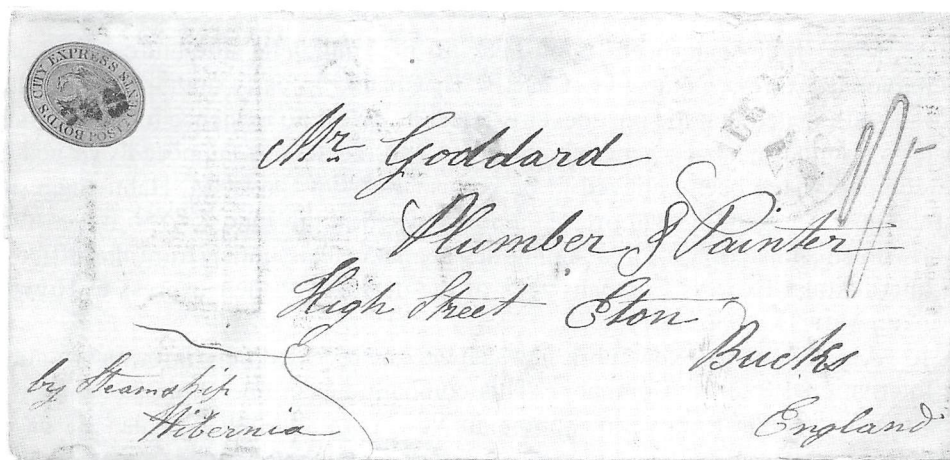 BOYD'S CITY EXPRESS POST
Mr. Goddard
Plumber & Painter
High Street Eton
Bucks
England
by Steamship
Hibernia